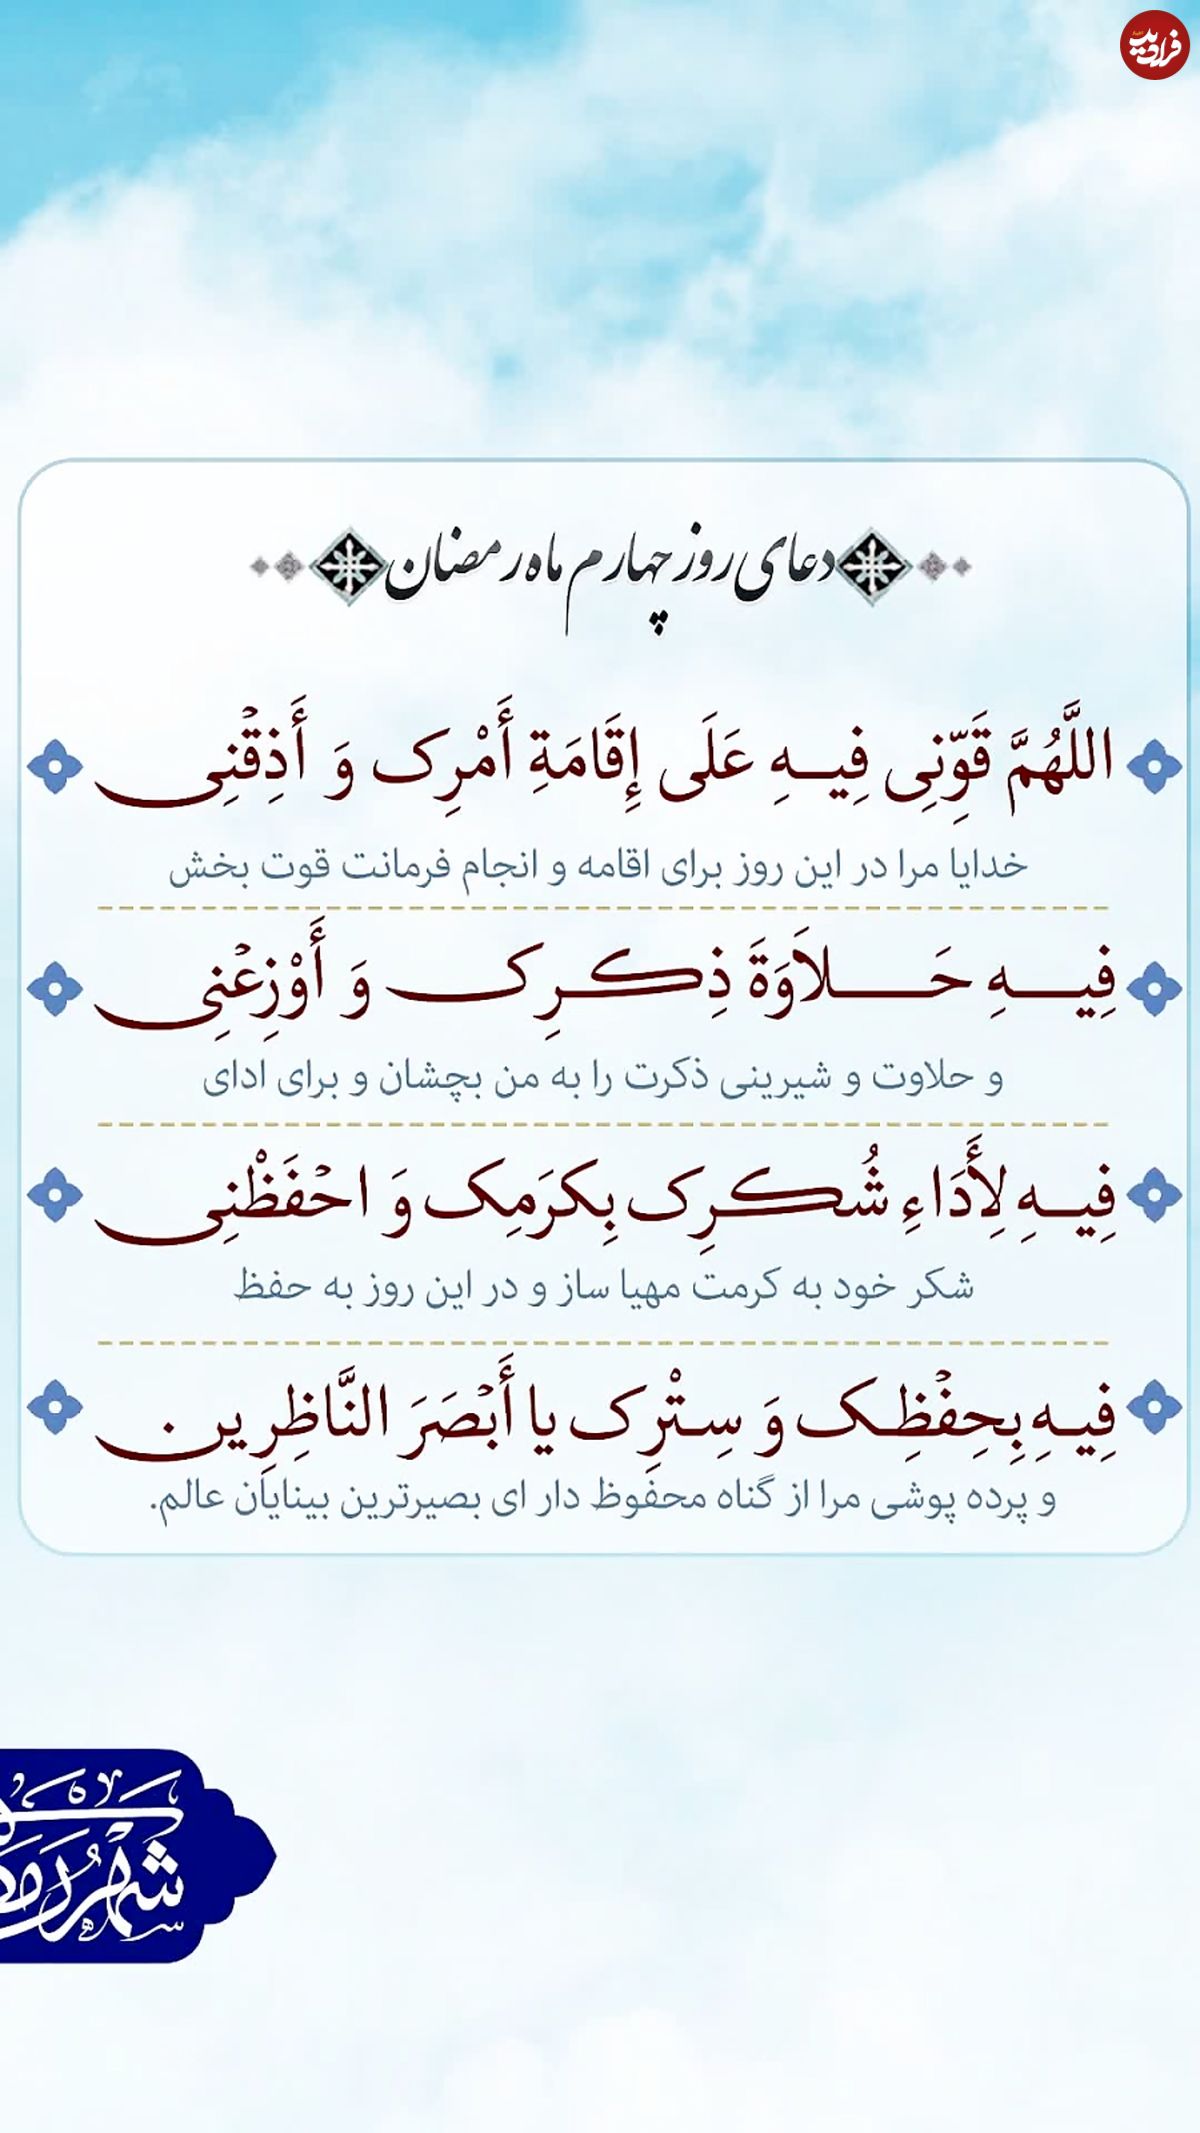 فرادید
دعای روز چهارم ماه رمضان
اللَّهُمَّ قَوِّنِی فِیـهِ عَلَی إِقَامَةِ أَمْرِک وَ أَذِقْنِی
خدایا مرا در این روز برای اقامه و انجام فرمانت قوت بخش
فِیـهِ حَـلاَوَةَ ذِکـرِک وَ أَوْزِعْنِی
و حلاوت و شیرینی ذکرت را به من بچشان و برای ادای
فِیـهِ لِأَدَاءِ شُکـرِک بِکرَمِک وَ احْفَظْنِی
شکر خود به کرمت مهیا ساز و در این روز به حفظ
فِیـهِ بِحِفْظِـک وَ سِـتْرِک یا أَبْصَرَ النَّاظِرِین.
و پرده پوشی مرا از گناه محفوظ دار ای بصیرترین بینایان عالم.
شهر